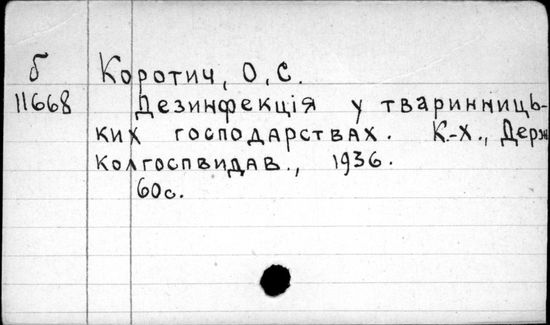 б Коротич, О. С.
11668 Дезинфекція у тваринниць-
ких господарствах. К.-Х., Держ
Колгоспвидав., 1936.
60с.